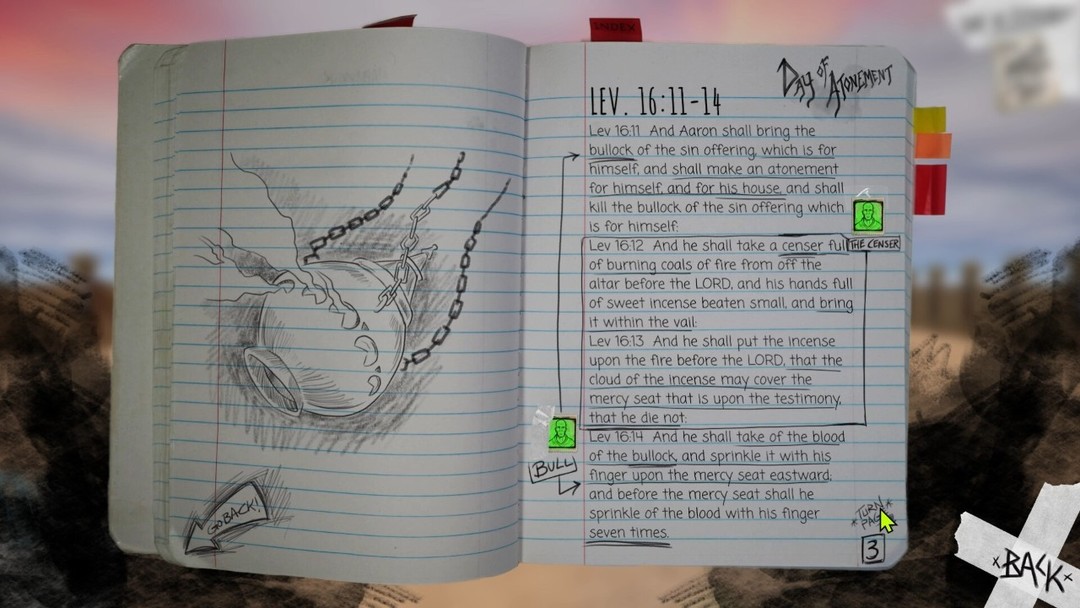 INDEX
DAY OF ATONEMENT
LEV. 16:11-14
Lev 16:11 And Aaron shall bring the
bullock of the sin offering, which is for
himself, and shall make an atonement
for himself, and for his house, and shall
kill the bullock of the sin offering which
is for himself:
Lev 16:12 And he shall take a censer full
THE CENSER
of burning coals of fire from off the
altar before the LORD, and his hands full
of sweet incense beaten small, and bring
it within the vail:
Lev 16:13 And he shall put the incense
upon the fire before the LORD, that the
cloud of the incense may cover the
mercy seat that is upon the testimony,
that he die not:
Lev 16:14 And he shall take of the blood
of the bullock, and sprinkle it with his
BULL
finger upon the mercy seat eastward;
and before the mercy seat shall he
sprinkle of the blood with his finger
seven times.
GO BACK!
*TURN
*PAGE*
3
xBACKx